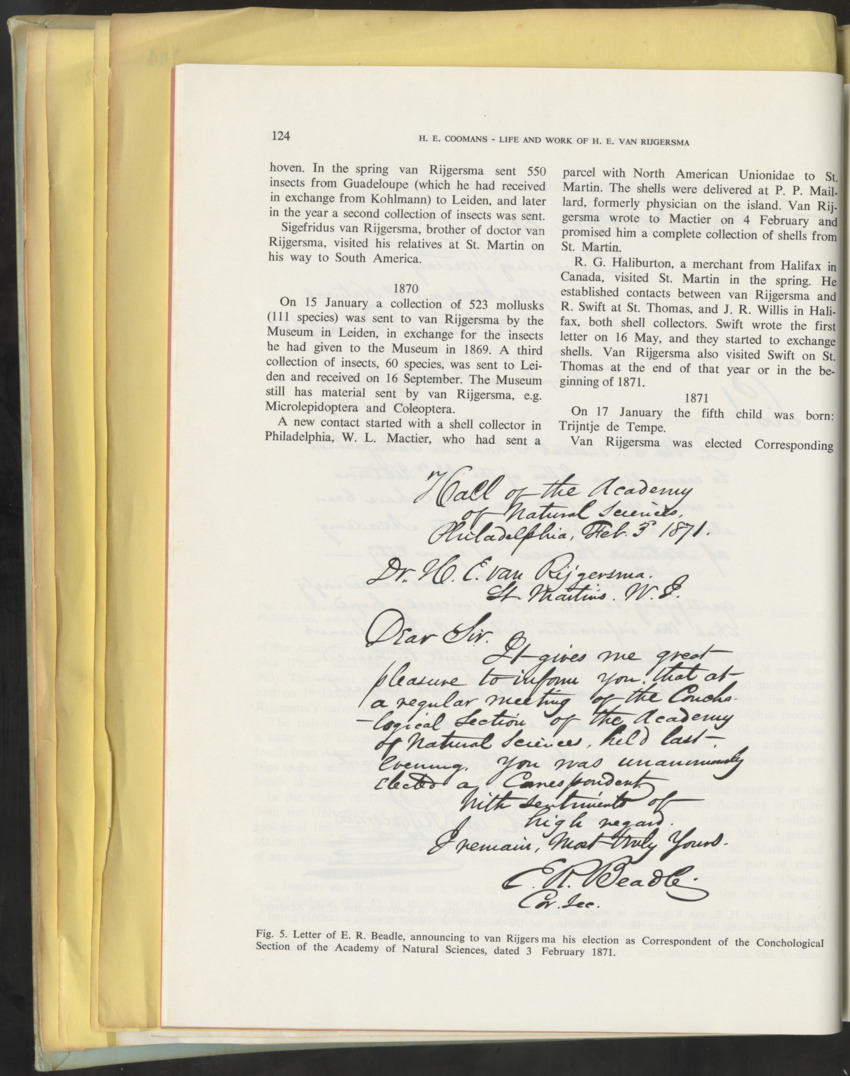 124
H. E. COOMANS - LIFE AND WORK OF H. E. VAN RIJGERSMA
hoven. In the spring van Rijgersma sent 550
insects from Guadeloupe (which he had received
in exchange from Kohlmann) to Leiden, and later
in the year a second collection of insects was sent.
Sigefridus van Rijgersma, brother of doctor van
Rijgersma, visited his relatives at St. Martin on
his way to South America.
1870
On 15 January a collection of 523 mollusks
(111 species) was sent to van Rijgersma by the
Museum in Leiden, in exchange for the insects
he had given to the Museum in 1869. A third
collection of insects, 60 species, was sent to Lei-
den and received on 16 September. The Museum
still has material sent by van Rijgersma, e.g.
Microlepidoptera and Coleoptera.
A new contact started with a shell collector in
Philadelphia, W. L. Mactier, who had sent a
parcel with North American Unionidae to St.
Martin. The shells were delivered at P. P. Mail-
lard, formerly physician on the island. Van Rij-
gersma wrote to Mactier on 4 February and
promised him a complete collection of shells from
St. Martin.
R. G. Haliburton, a merchant from Halifax in
Canada, visited St. Martin in the spring. He
established contacts between van Rijgersma and
R. Swift at St. Thomas, and J. R. Willis in Hali-
fax, both shell collectors. Swift wrote the first
letter on 16 May, and they started to exchange
shells. Van Rijgersma also visited Swift on St.
Thomas at the end of that year or in the be-
ginning of 1871.
1871
On 17 January the fifth child was born:
Trijntje de Tempe.
Van Rijgersma was elected Corresponding
Hall of the Academy
of Natural Sciences,
Philadelphia, Feb. 3d 1871.
Dr. H. E. van Rijgersma.
St. Martins. W. I.
Dear Sir.
It gives me great
pleasure to inform you, that at
a regular meeting of the Concho-
-logical Section of the Academy
of Natural Sciences, held last
evening, You was unanimously
elected a Correspondent
With sentiments of
high regard.
I remain, Most truly Yours.
E. R. Beadle.
Cor. Sec.
Fig. 5. Letter of E. R. Beadle, announcing to van Rijgersma his election as Correspondent of the Conchological
Section of the Academy of Natural Sciences, dated 3 February 1871.